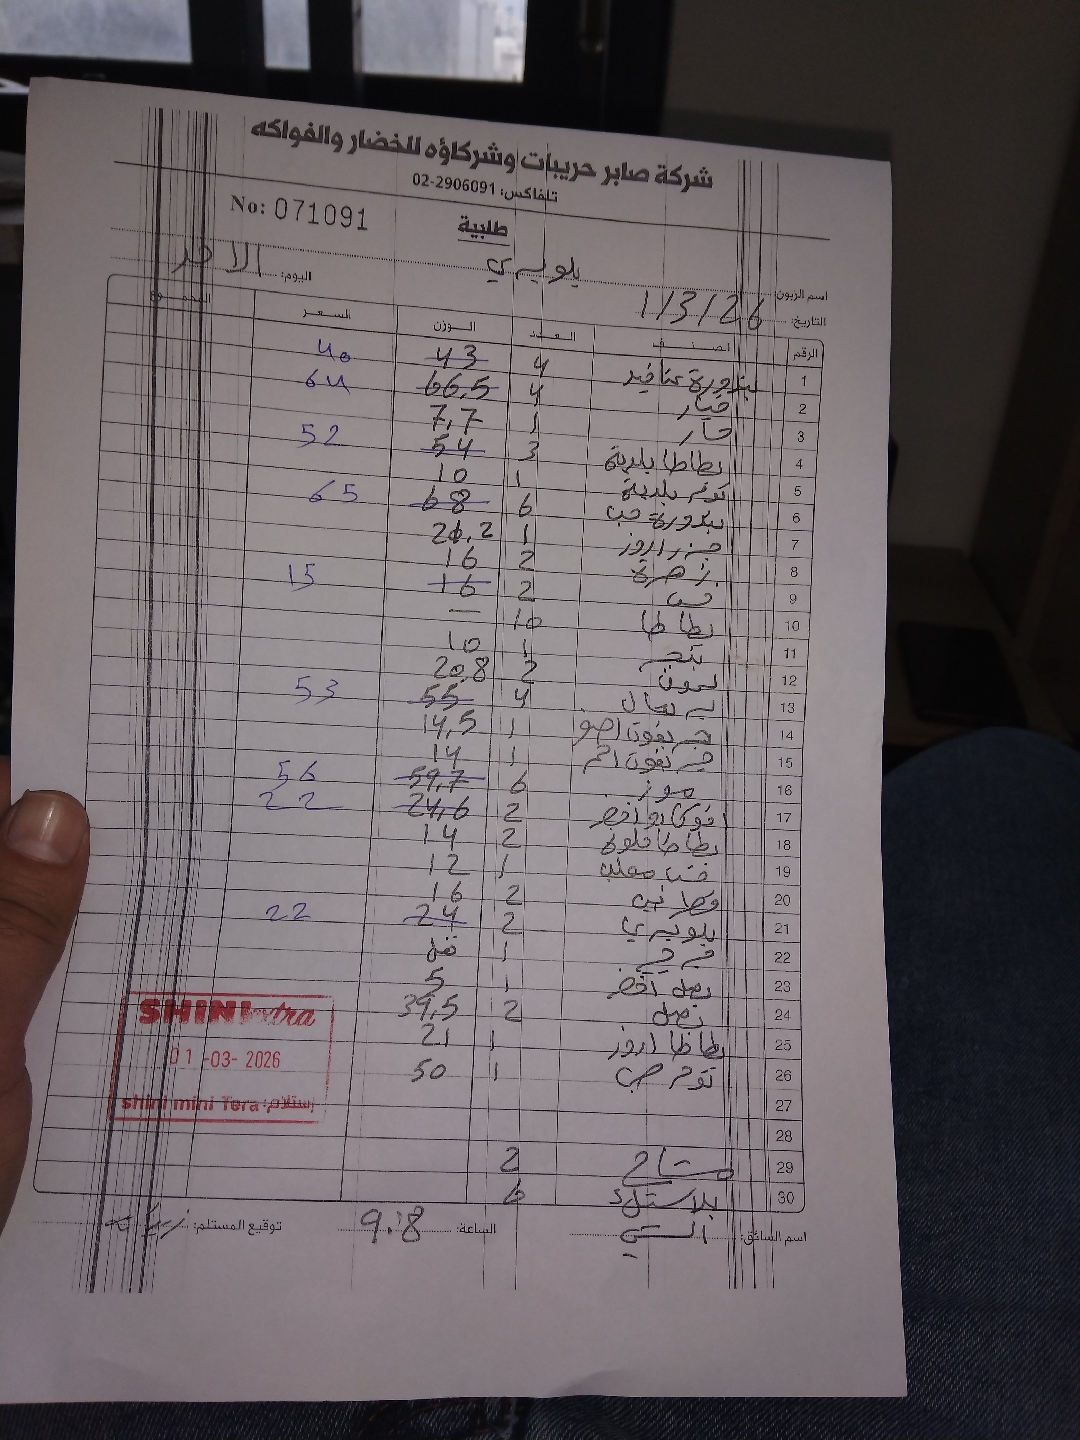 شركة صابر حريبات وشركاؤه للخضار والفواكه
تلفاكس: 02-2906091
No: 071091
طلبية
اسم الزبون: بلوبيري اليوم: الاحد
التاريخ: 1/3/26
الرقم الصنف العدد الوزن السعر المجموع
1 بندورة عناقيد 4 43 40
2 خيار 4 66,5 64
3 حار 1 7,7
4 بطاطا بلدية 3 54 52
5 بلدية 1 10
6 بندورة حب 6 68 65
7 جزر اروز 1 26,2
8 زهرة 2 16
9 خس 2 16 15
10 بطاطا 10 —
11 1 10
12 ليمون 2 20,8
13 4 55 53
14 1 14,5
15 1 14
16 موز 6 59,7 56
17 افوكادو اخضر 2 24,6 22
18 بطاطا حلوة 2 14
19 1 12
20 2 16
21 بلوبيري 2 24 22
22 1
23 بصل اخضر 1 5
24 بصل 2 39,5
25 بطاطا اروز 1 21
26 1 50
27
28
29 مشتاح 2
30 بلاستيك 6
اسم السائق: الساعة: 9:18 توقيع المستلم:
SHINI extra
01 -03- 2026
shini mini Tera إستلام: